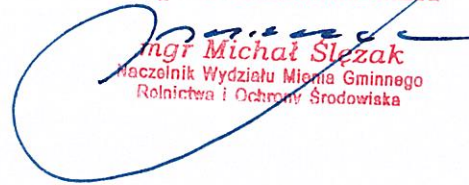 mgr Michał Ślęzak
Naczelnik Wydziału Mienia Gminnego
Rolnictwa i Ochrony Środowiska